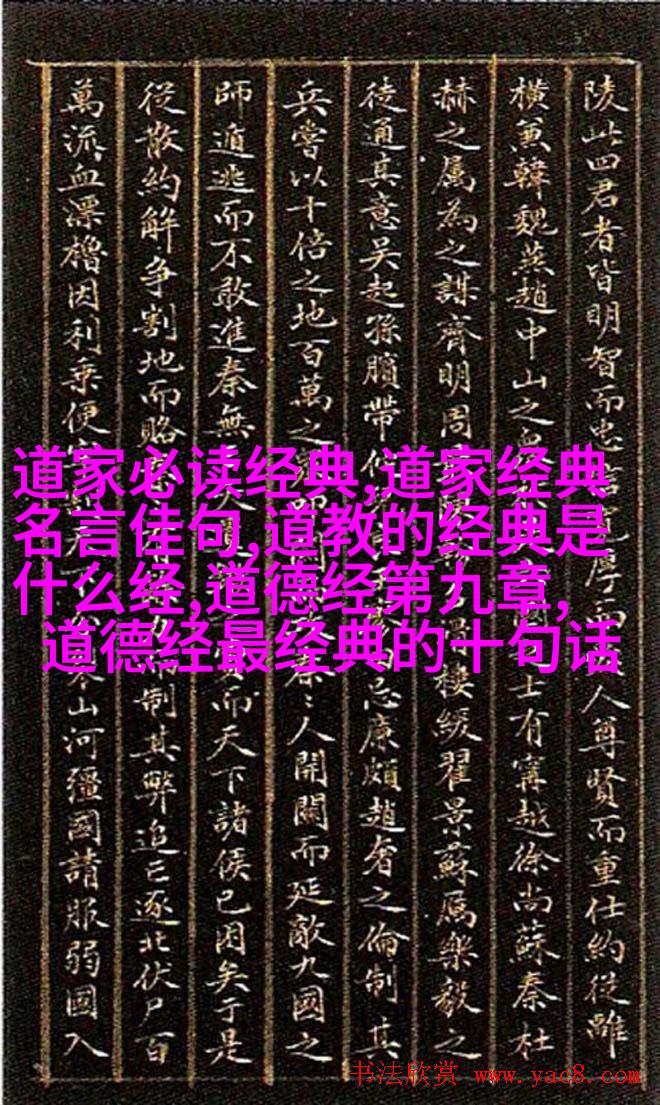 陵此四君者皆明智而忠厚而人尊賢而重仕約從離
橫兼韓魏燕趙中山之士有甯越徐尚蘇秦杜
赫之属為之謀齊明周樓緩翟景蘇厲樂毅之
徒通其意吳起孫臏帶忌廉頗趙奢之倫制其
兵嘗以十倍之地百萬之秦〻人開關而延敵九國之
師遁逃而不敢進秦無而天下諸侯已困矣于是
從散約解爭割地而賂制其弊追亡逐北伏尸百
萬流血漂櫓因利乘便山河彊國請服弱國入
道家必读经典,道家经典
名言佳句,道教的经典是
什么经,道德经第九章,
道德经最经典的十句话
书法欣赏 www.yac8.com